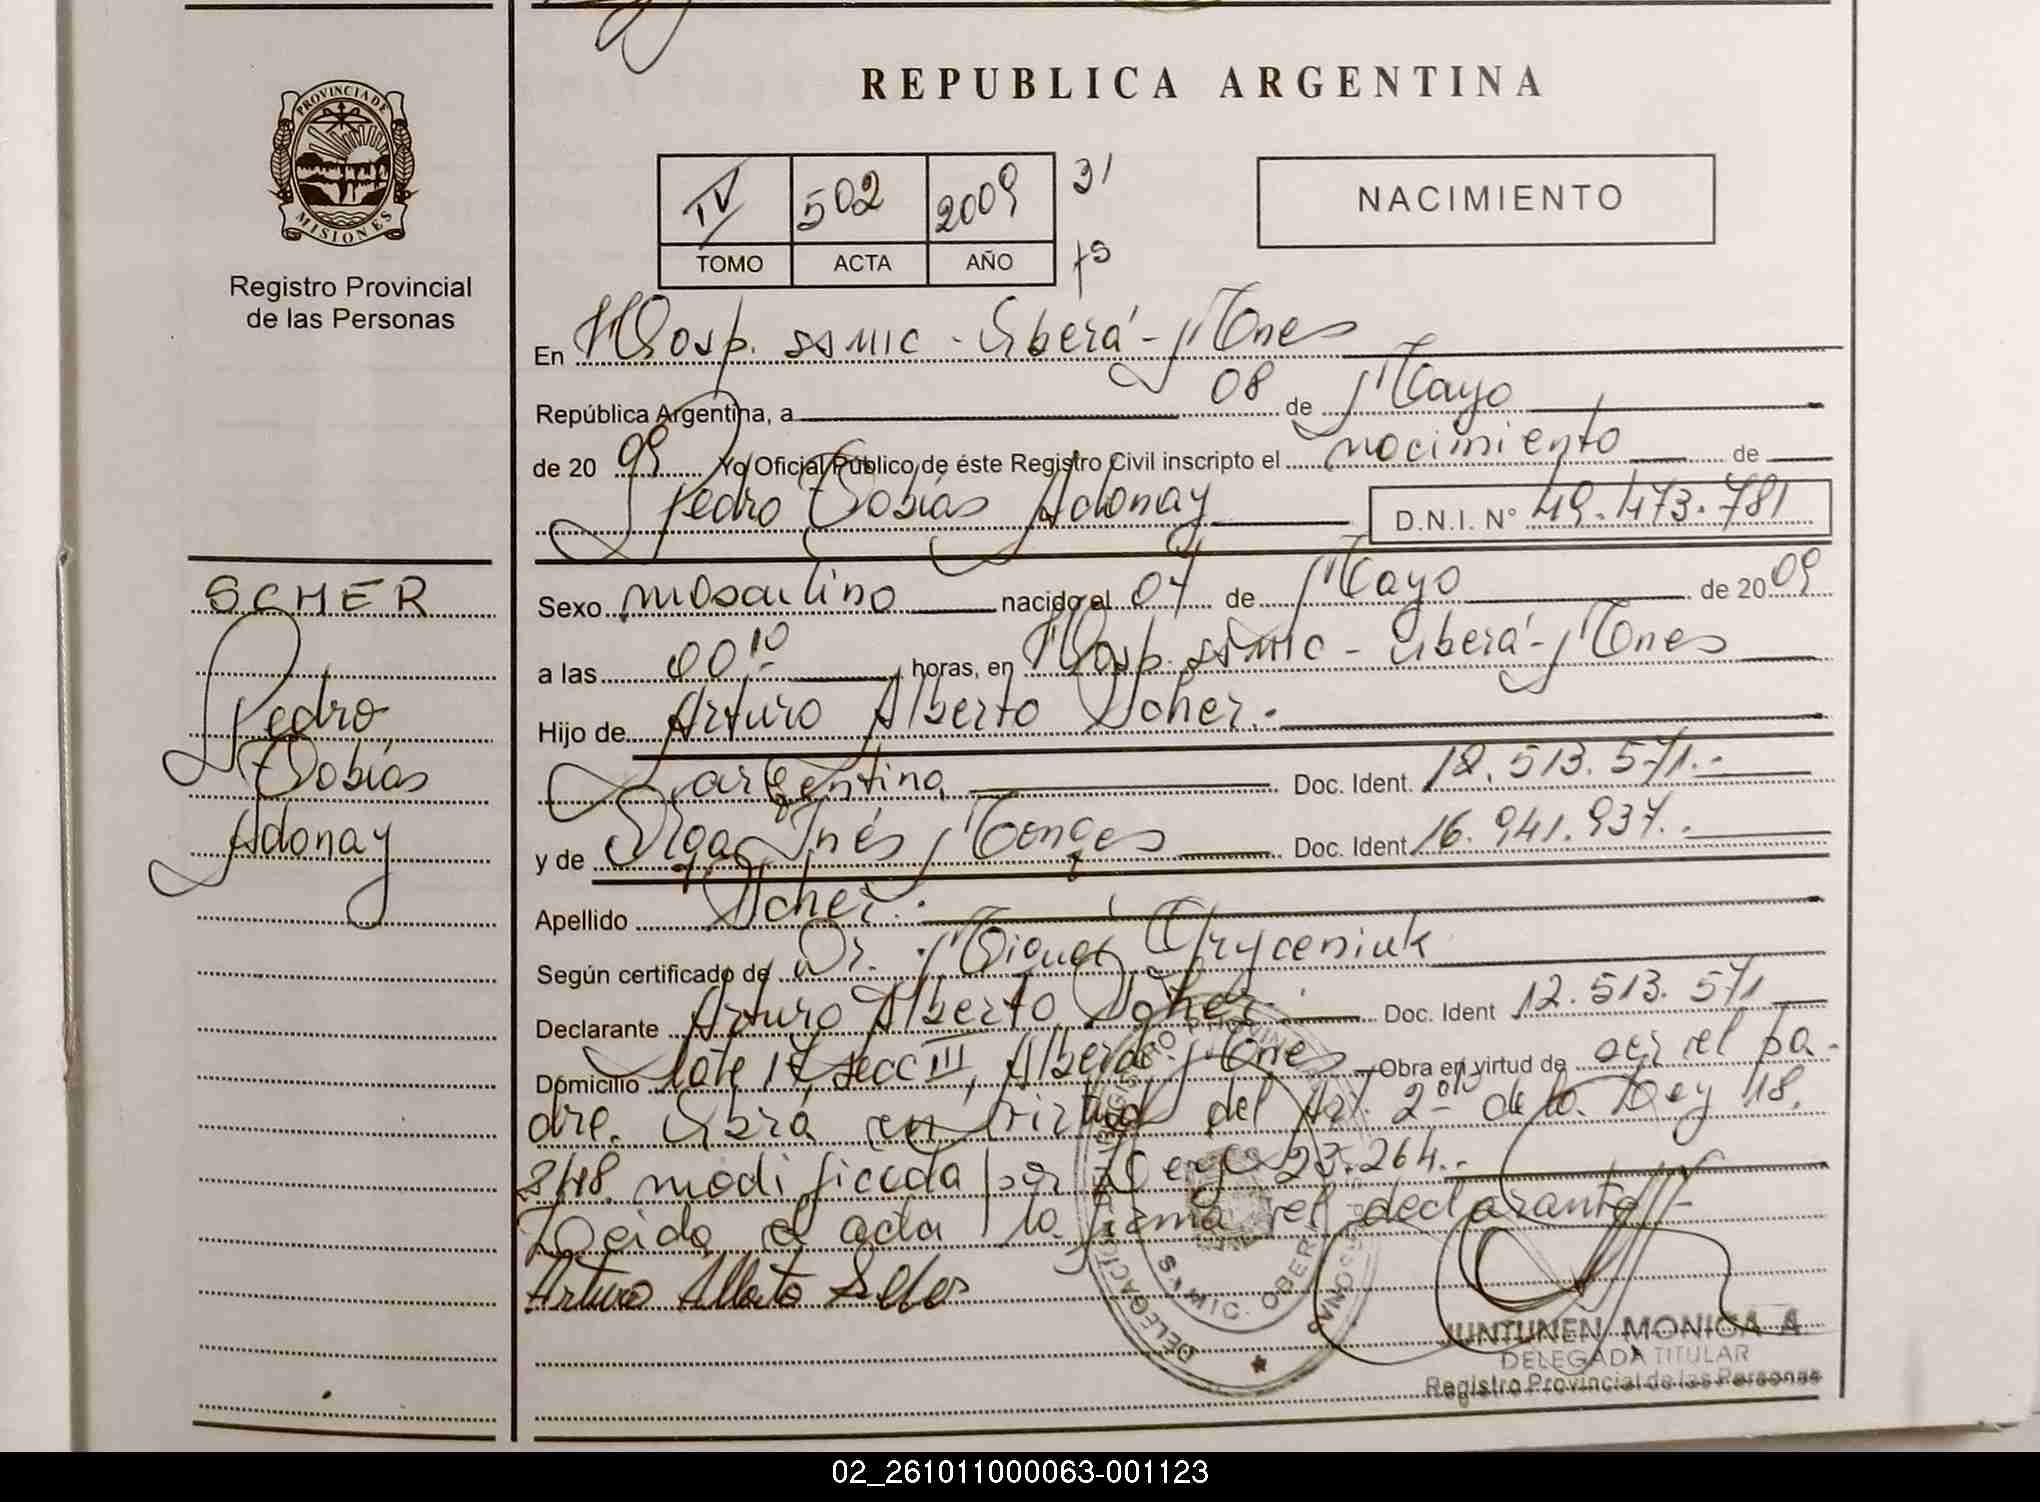 REPUBLICA ARGENTINA
PROVINCIA DE
MISIONES
Registro Provincial
de las Personas
IV 502 2009 31
TOMO ACTA AÑO fs
NACIMIENTO
En Hosp. SAMIC - Oberá - Mones
República Argentina, a 08 de Mayo
de 20 09 Yo Oficial Público de éste Registro Civil inscripto el nacimiento de
Pedro Tobías Adonay D.N.I. N° 49.473.781
SCHER
Pedro
Tobías
Adonay
Sexo masculino nacido el 07 de Mayo de 20 09
a las 00 10 horas, en Hosp. SAMIC - Oberá - Mones
Hijo de Arturo Alberto Scher.-
argentina Doc. Ident. 12.513.571.-
y de Olga Inés Monges Doc. Ident 16.941.937.-
Apellido Scher.-
Según certificado de Dr. Miguel Hryceniuk
Declarante Arturo Alberto Scher Doc. Ident 12.513.571
Domicilio Lote 17, secc III, Alberdi - Mones Obra en virtud de ser el pa-
dre. Obrá en virtud del Art. 2do de la Ley 18.
248 modificada por Ley 23.264.-
Leida el acta la firma el declarante -
Arturo Alberto Scher
DELEGACION
SAMIC. OBERA
JUNTUNEN MONICA A
DELEGADA TITULAR
Registro Provincial de las Personas
02_261011000063-001123